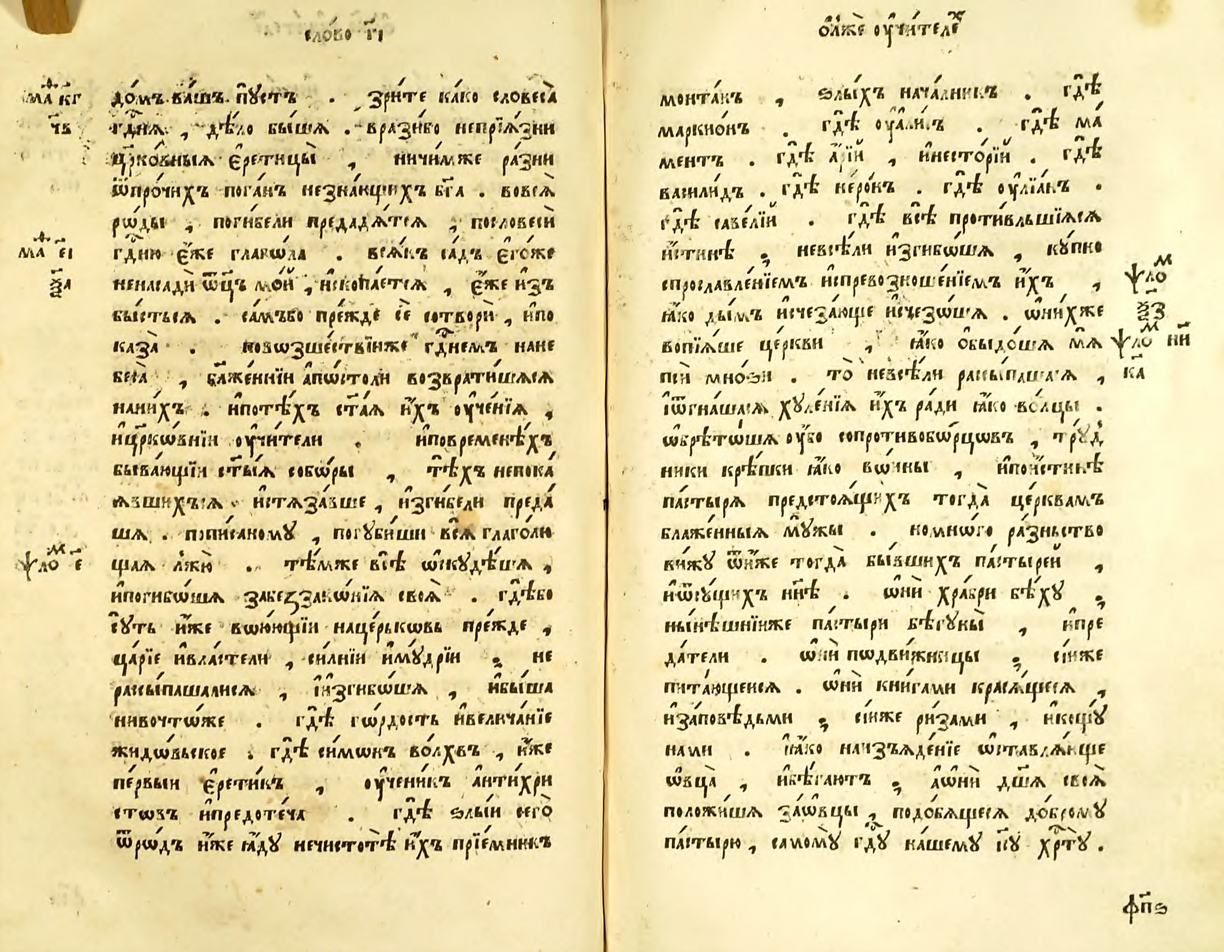 сло́во г҃і
ма ѳ кг
чв
до́мъ ва́шъ пу́стъ . зри́те ка́ко словеса̀
гдⷭ҇нѧ , дѣ́ло бы́шѧ . вразꙋ́бо непрїѧ́зни
цр҃ко́вныѧ є҆ретицы̀ , ничи́мже ра́зни
ѿпро́чихъ пога́нъ незна́ющихъ бг҃а . вовсѧ̀
рѡды̀ , поги́бели предадѧ́тсѧ , пословесѝ
ма ѳ еі
гдⷭ҇ню є҆́же глаго́ла . всѧ́къ са́дъ є҆го́же
ѯа
ненасадѝ ѿц҃ъ мо́й , и҆скопа́етсѧ , є҆́же и҆зъ
бы́стьсѧ . са́мъбо пре́жде сѐ сотворѝ , и҆по
каза̀ . повозше́ствїиже гдⷭ҇немъ нане
беса̀ , бл҃же́ннїи а҆пⷭ҇толи возврати́шасѧ
нани́хъ . и҆поте́хъ ст҃а́ѧ и҆́хъ оу҆че́нїѧ ,
и҆цр҃ко́внїи оу҆чи́тели . и҆повремене́хъ
быва́ющїи ст҃ы́ѧ собѡ́ры , тѣ́хъ непока́
ѧвшихъсѧ и҆стѧза́вше , и҆зги́бели преда́
шѧ . пописа́ному , погꙋби́ши всѧ̀ глаго́лю
ѱло м е
щаѧ лжю̀ . тѣ́мже всѝ ѡ҆скꙋдѣ́шѧ ,
и҆поги́бошѧ забеззако́нїѧ своѧ̀ . гдѣ́бо
сꙋ́ть и҆̀же вою́ющїи наце́рьковь пре́жде ,
ца́рїе и҆вла́стели , си́лнїи и҆мꙋ́дрїи ; не
расы́пашалисѧ , і҆изги́бошѧ , и҆бы́ша
нивочто́же . гдѣ̀ го́рдость и҆велича́нїе
жидо́вьское . гдѣ̀ си́монъ во́лхвъ , и҆́же
пе́рвыи є҆рети́къ , оу҆чени́къ а҆нтихри́
стовъ и҆предоте́ча . гдѣ̀ ѕлы́и сего̀
ѿро́дъ и҆́же ꙗ҆́дꙋ нечистотѣ̀ и҆́хъ прїе́мникъ
о҆лжѐ оу҆чи́телеⷯ
монта́нъ , ѕлы́хъ нача́лникъ . гдѣ̀
маркио́нъ . гдѣ̀ оу҆али́съ . гдѣ̀ ма́
ментъ . гдѣ̀ а҆́рїй , и҆несто́рїй . гдѣ̀
васили́дъ . гдѣ̀ неро́нъ . гдѣ̀ оу҆лїа́нъ .
гдѣ̀ саве́лїй . гдѣ̀ всѣ̀ проти́вльшїисѧ
и҆́стинѣ , невсѣ́ли и҆зги́бошѧ , кꙋ́пно
ѱло м
спрославле́нїемъ и҆спревозноше́нїемъ и҆́хъ ,
ѯз
ꙗ҆́ко ды́мъ и҆счеза́юще и҆счезо́шѧ . ѡ҆ни́хже
ѱло м ни
вопїѧ́ше це́ркви , ꙗ҆́ко ѡ҆быдо́шѧ мѧ̀
ка
псѝ мно́зи . то̀ невсѣ́ли расы́пашасѧ ,
і҆ѿгна́шасѧ хꙋле́нїѧ и҆́хъ ра́ди ꙗ҆́ко во́лцы .
ѡ҆брѣто́шѧ оу҆́бо сопротивобо́рцовъ , трꙋд
ники крѣ́пки ꙗ҆́ко во́ины , и҆пои́стинѣ
па́стырѧ предстоѧ́щихъ тогда̀ це́рквамъ
блаже́нныѧ мꙋ́жы . номно́го ра́зньство
ви́жꙋ ѿи҆́же тогда̀ бы́вшихъ па́стырей ,
и҆ѿсꙋ́щихъ нн҃ѣ . ѡ҆нѝ хра́бри бѣ́хꙋ ;
ны́нѣшнїиже па́стыри бѣгꙋны̀ , и҆пре
да́тели . ѡ҆нѝ подви́жницы ; сїи́же
пита́ющеисѧ . ѡ҆нѝ кни́гами красѧ́щесѧ ,
и҆за́повѣдьми ; сїи́же ри́зами , и҆кощꙋ́
нами . ꙗ҆́ко наизъѧде́нїе ѡ҆ставлѧ́юще
ѻ҆́вца , и҆бѣ́гаютъ ; а҆ѡ҆нѝ дш҃а своѧ̀
положи́шѧ заѻ҆́вцы , подо́бѧщесѧ до́бромꙋ
па́стырю , самомꙋ̀ гдⷭ҇ꙋ на́шемꙋ і҆с҃ꙋ хрⷭ҇тꙋ̀ .
фп҃ѕ